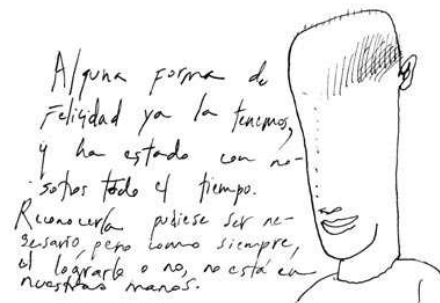 Alguna forma de
Felicidad ya la tenemos,
y ha estado con no-
sotros todo el tiempo.
Reconocerla pudiese ser ne-
sesario, pero como siempre,
el lograrlo o no, no está en
nuestras manos.